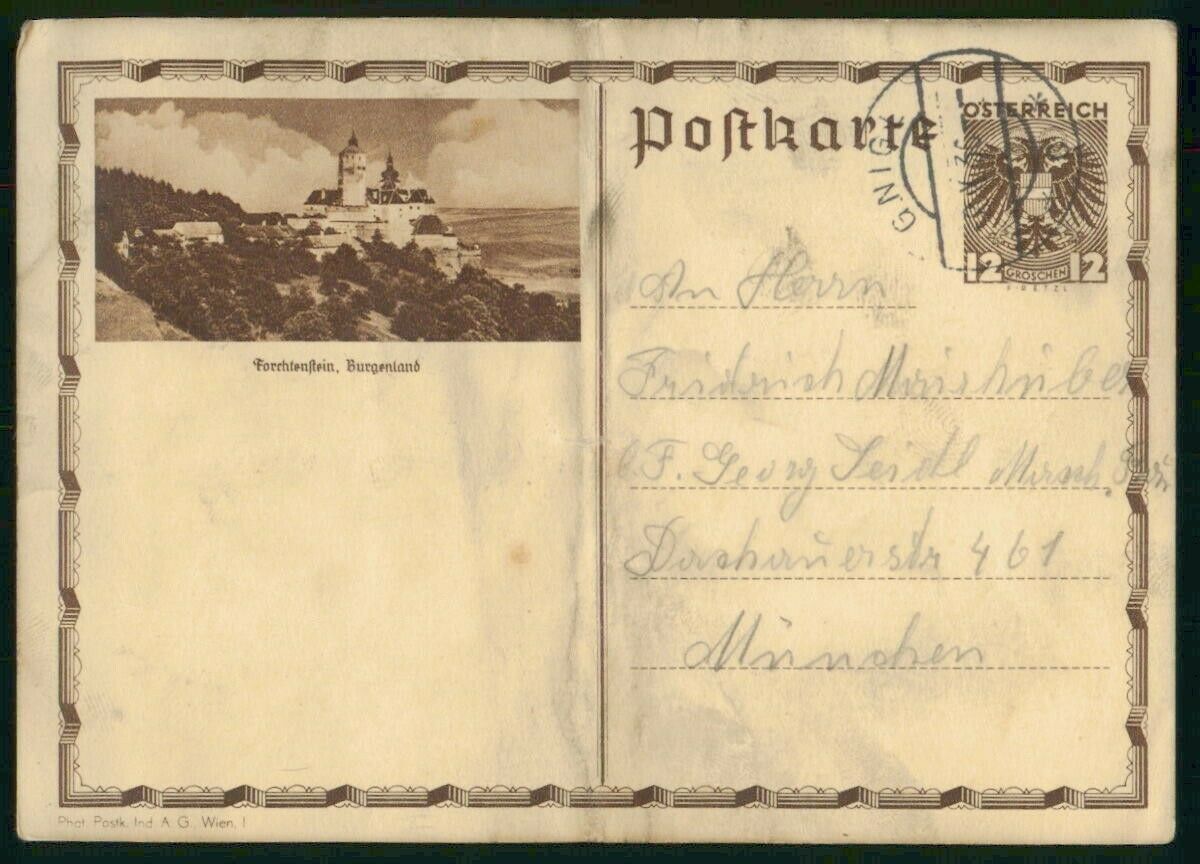 Postkarte
ÖSTERREICH
GNIG
12 GROSCHEN 12
Forchtenstein, Burgenland
An Herrn
Friedrich
F. Georg Seidl Masch.
Dachauerstr 461
München
Phot. Postk. Ind. A. G., Wien, I